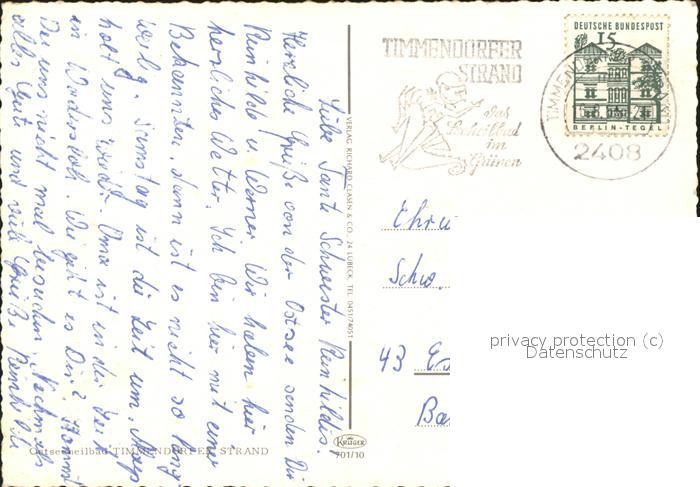 Liebe Tante Schwester Reinhildis!
Herzliche Grüße von der Ostsee senden Dir
Reinhilde u. Werner. Wir haben hier
herrliches Wetter. Ich bin hier mit einer
Bekannten, dann ist es nicht so lang-
weilig. Samstag ist die Zeit um.
holt uns wieder. Oma ist in der
in Wiedersholt. Wie geht es Dir? Kommst
Du uns nicht mal besuchen. Nochmals
alles Gute und viele Grüße Reinhilde
Ostseeheilbad TIMMENDORFER STRAND
VERLAG RICHARD CLASEN & CO., 24 LÜBECK, TEL. 0451/74051
KRÜGER
701/10
TIMMENDORFER
STRAND
das
Seeheilbad
im
Grünen
DEUTSCHE BUNDESPOST
15
BERLIN-TEGEL
2408
Ehrw
Schw.
43 Es
Ba
privacy protection (c)
Datenschutz